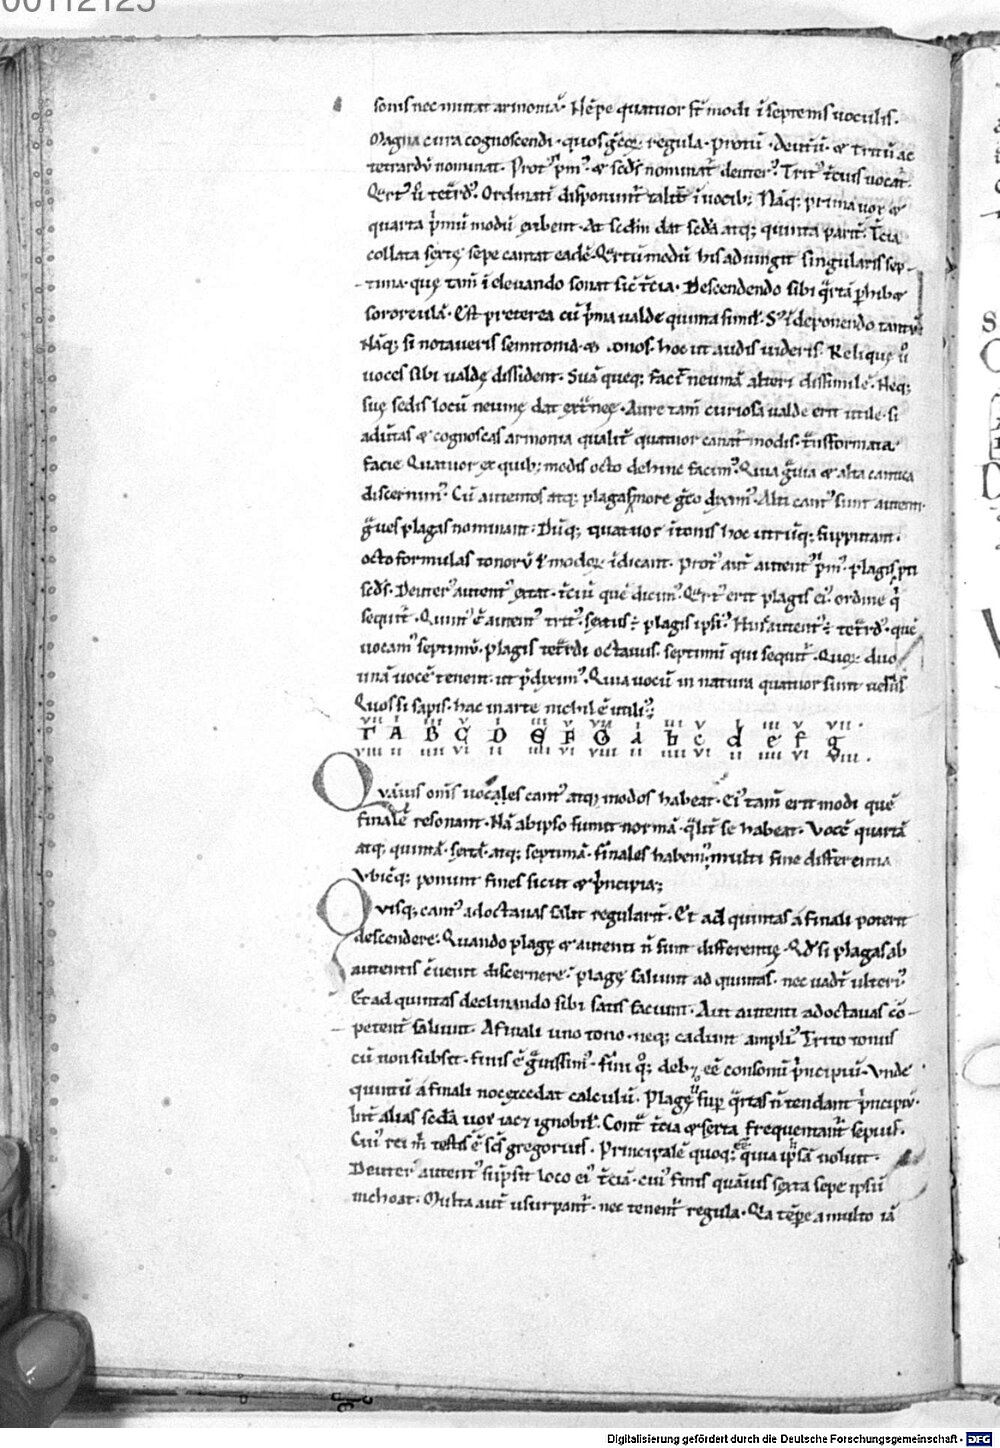 00112125
sonis nec mutat armoniā. Nēpe quatuor st̄ modi ī septenis uoculis.
Magna cura cognoscendi. quos gc̄oꝝ regula. protū. deut̄ū. & tritū ac
tetrardū nominat. Prot᾽ pm᾽. & sc̄ds nominat᷑ deuter᾽. Trit᾽ tc̄ius uocat᷑.
Qrt᾽ ū tetrd᾽. Ordinati disponunt᷑ talit̄ ī uocib; Nāq; prima uox &
quarta pmū modū exibent. At sc̄dm dat sc̄da atq; quinta parit̄. Tc̄ia
collata sextę sepe cantat eadē. Qrtū modū his adiungit singularis sep-
tima. quę tam̄ ī eleuando sonat sic tc̄ia. Descendendo sibi qrtā phib&
sororculā. Est preterea cū pma ualde quinta simil᾽. S; ī deponendo tantū
Nāq; si notaueris semitonia. & tonos. hoc ut audis uideris. Relique ū
uoces sibi ualdę dissident. Suā queq; fac̄ neumā alteri dissimilē. Neq;
suę sedis locū neumę dat ext̄neę. Aure tam̄ curiosa ualde erit utile. si
aduītas & cognoscas armonia qualit̄ quatuor canat᷑ modis. t̄nsformata
facie. Quatuor ex quib; modis octo dehinc facim᾽. Quia gͣuia & alta cantica
discernim᾽. Cū autentos atq; plagas more gc̄o dixim᾽. Alti cant᾽ sunt autenti.
gͣues plagas nominant. Dūq; quatuor ī tonis hoc utrūq; supputant.
octo formulas tonorū ł modoꝝ īdicant. Prot᾽ aut̄ autent᾽ pm᾽. plagis pti
sc̄ds. Deuter᾽ autent᾽ extat. tc̄iū quē dicim᾽. Qrt᾽ erit plagis ei᾽. ordine q̄
sequit᷑. Quint᾽ ē autent᾽ trit᾽. sextus ē plagis ipsi᾽. Huic autent᾽ ē tetrd᾽. quē
uocam᾽ septimū. plagis tetrdi octauus. septimū qui sequit᷑. Quoꝝ duo
unā uocē tenent. ut pdixim᾽. Quia uocū in natura quatuor sunt uersus
Quos si sapis. hac in arte nichil ē utili᾽;
vii i iii v vii i iii v i iii v vii.
Γ A B C D E F G a b c d e f g
viii ii iiii vi ii iiii vi viii ii iiii vi ii iiii vi viii.
Quāuis om̄s uocales cant᾽ atq; modos habeat. Ei᾽ tam̄ erit modi quē
finalē resonant. Nā ab ipso sumit normā. qlit̄ se habeat. Vocē quartā
atq; quintā. sextā. atq; septimā. finales habem᾽. multi sine differentia
Vbicq; ponunt fines sicut & pncipia;
Quisq; cant᾽ ad octauas salit regularit̄. Et ad quintas a finali poterit
descendere. Quando plagę & autenti n̄ sunt differentię. Qd᾽ si plagas ab
autentis cuenit discernere. plagę saliunt ad quintas. nec uadt̄ ulteri᾽.
Et ad quintas declinando sibi satis faciunt. Aut autenti ad octauas cō-
petent̄ saliunt. A finali uno tono. neq; cadunt ampli᾽. Trito tonus
cū non subsit. finis ē gͣuissim᾽. fini qꝫ. deb; eē consonū pncipiū. Vnde
quintū a finali no excedat calculū. Plagę ū sup qrtas n̄ tendant pncipiū.
Int̄ alias sc̄da uox iacet ignobil᾽. Cont̄ tc̄ia & sexta frequentant᷑ sepius.
Cui᾽ rei m̄ testis ē sc̄s gregorius. Principalē quoq; quia ipsā uoluit.
Deuter᾽ autent᾽ supsit loco ei᾽ tc̄iā. cui᾽ finis quāuis sexta sepe ipsū
inchoat. Multa aut̄ usurpant᷑. nec tenent᷑ regula. Ea tēpe a multo iā
Digitalisierung gefördert durch die Deutsche Forschungsgemeinschaft - DFG